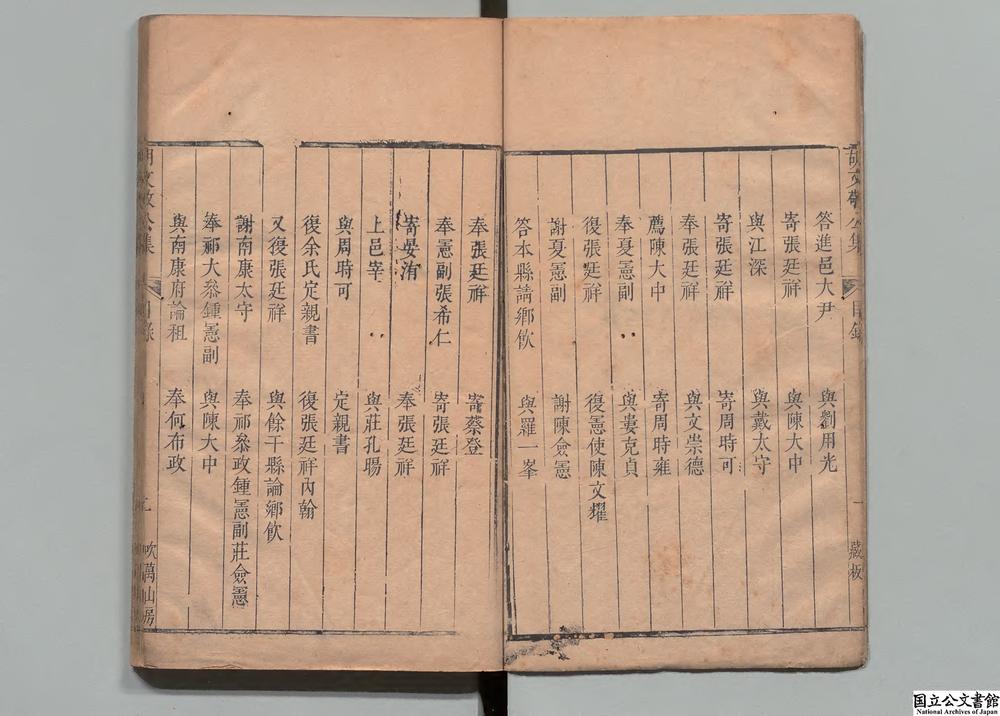 胡文敬公集
目錄
一
藏板
答進邑大尹 與劉用光
寄張廷祥 與陳大中
與江深 與戴太守
寄張廷祥 寄周時可
奉張廷祥 與文崇德
薦陳大中 寄周時雍
奉夏憲副 與婁克貞
復張廷祥 復憲使陳文耀
謝夏憲副 謝陳僉憲
答本縣請鄉飲 與羅一峯
奉張廷祥 寄蔡登
奉憲副張希仁 寄張廷祥
寄晏洧 奉張廷祥
上邑宰 與莊孔暘
與周時可 定親書
復余氏定親書 復張廷祥內翰
又復張廷祥 與餘干縣論鄉飲
謝南康太守 奉祁叅政鍾憲副莊僉憲
奉祁大叅鍾憲副 與陳大中
與南康府論租 奉何布政
胡文敬公集
目錄
吹萬山房
国立公文書館
National Archives of Japan